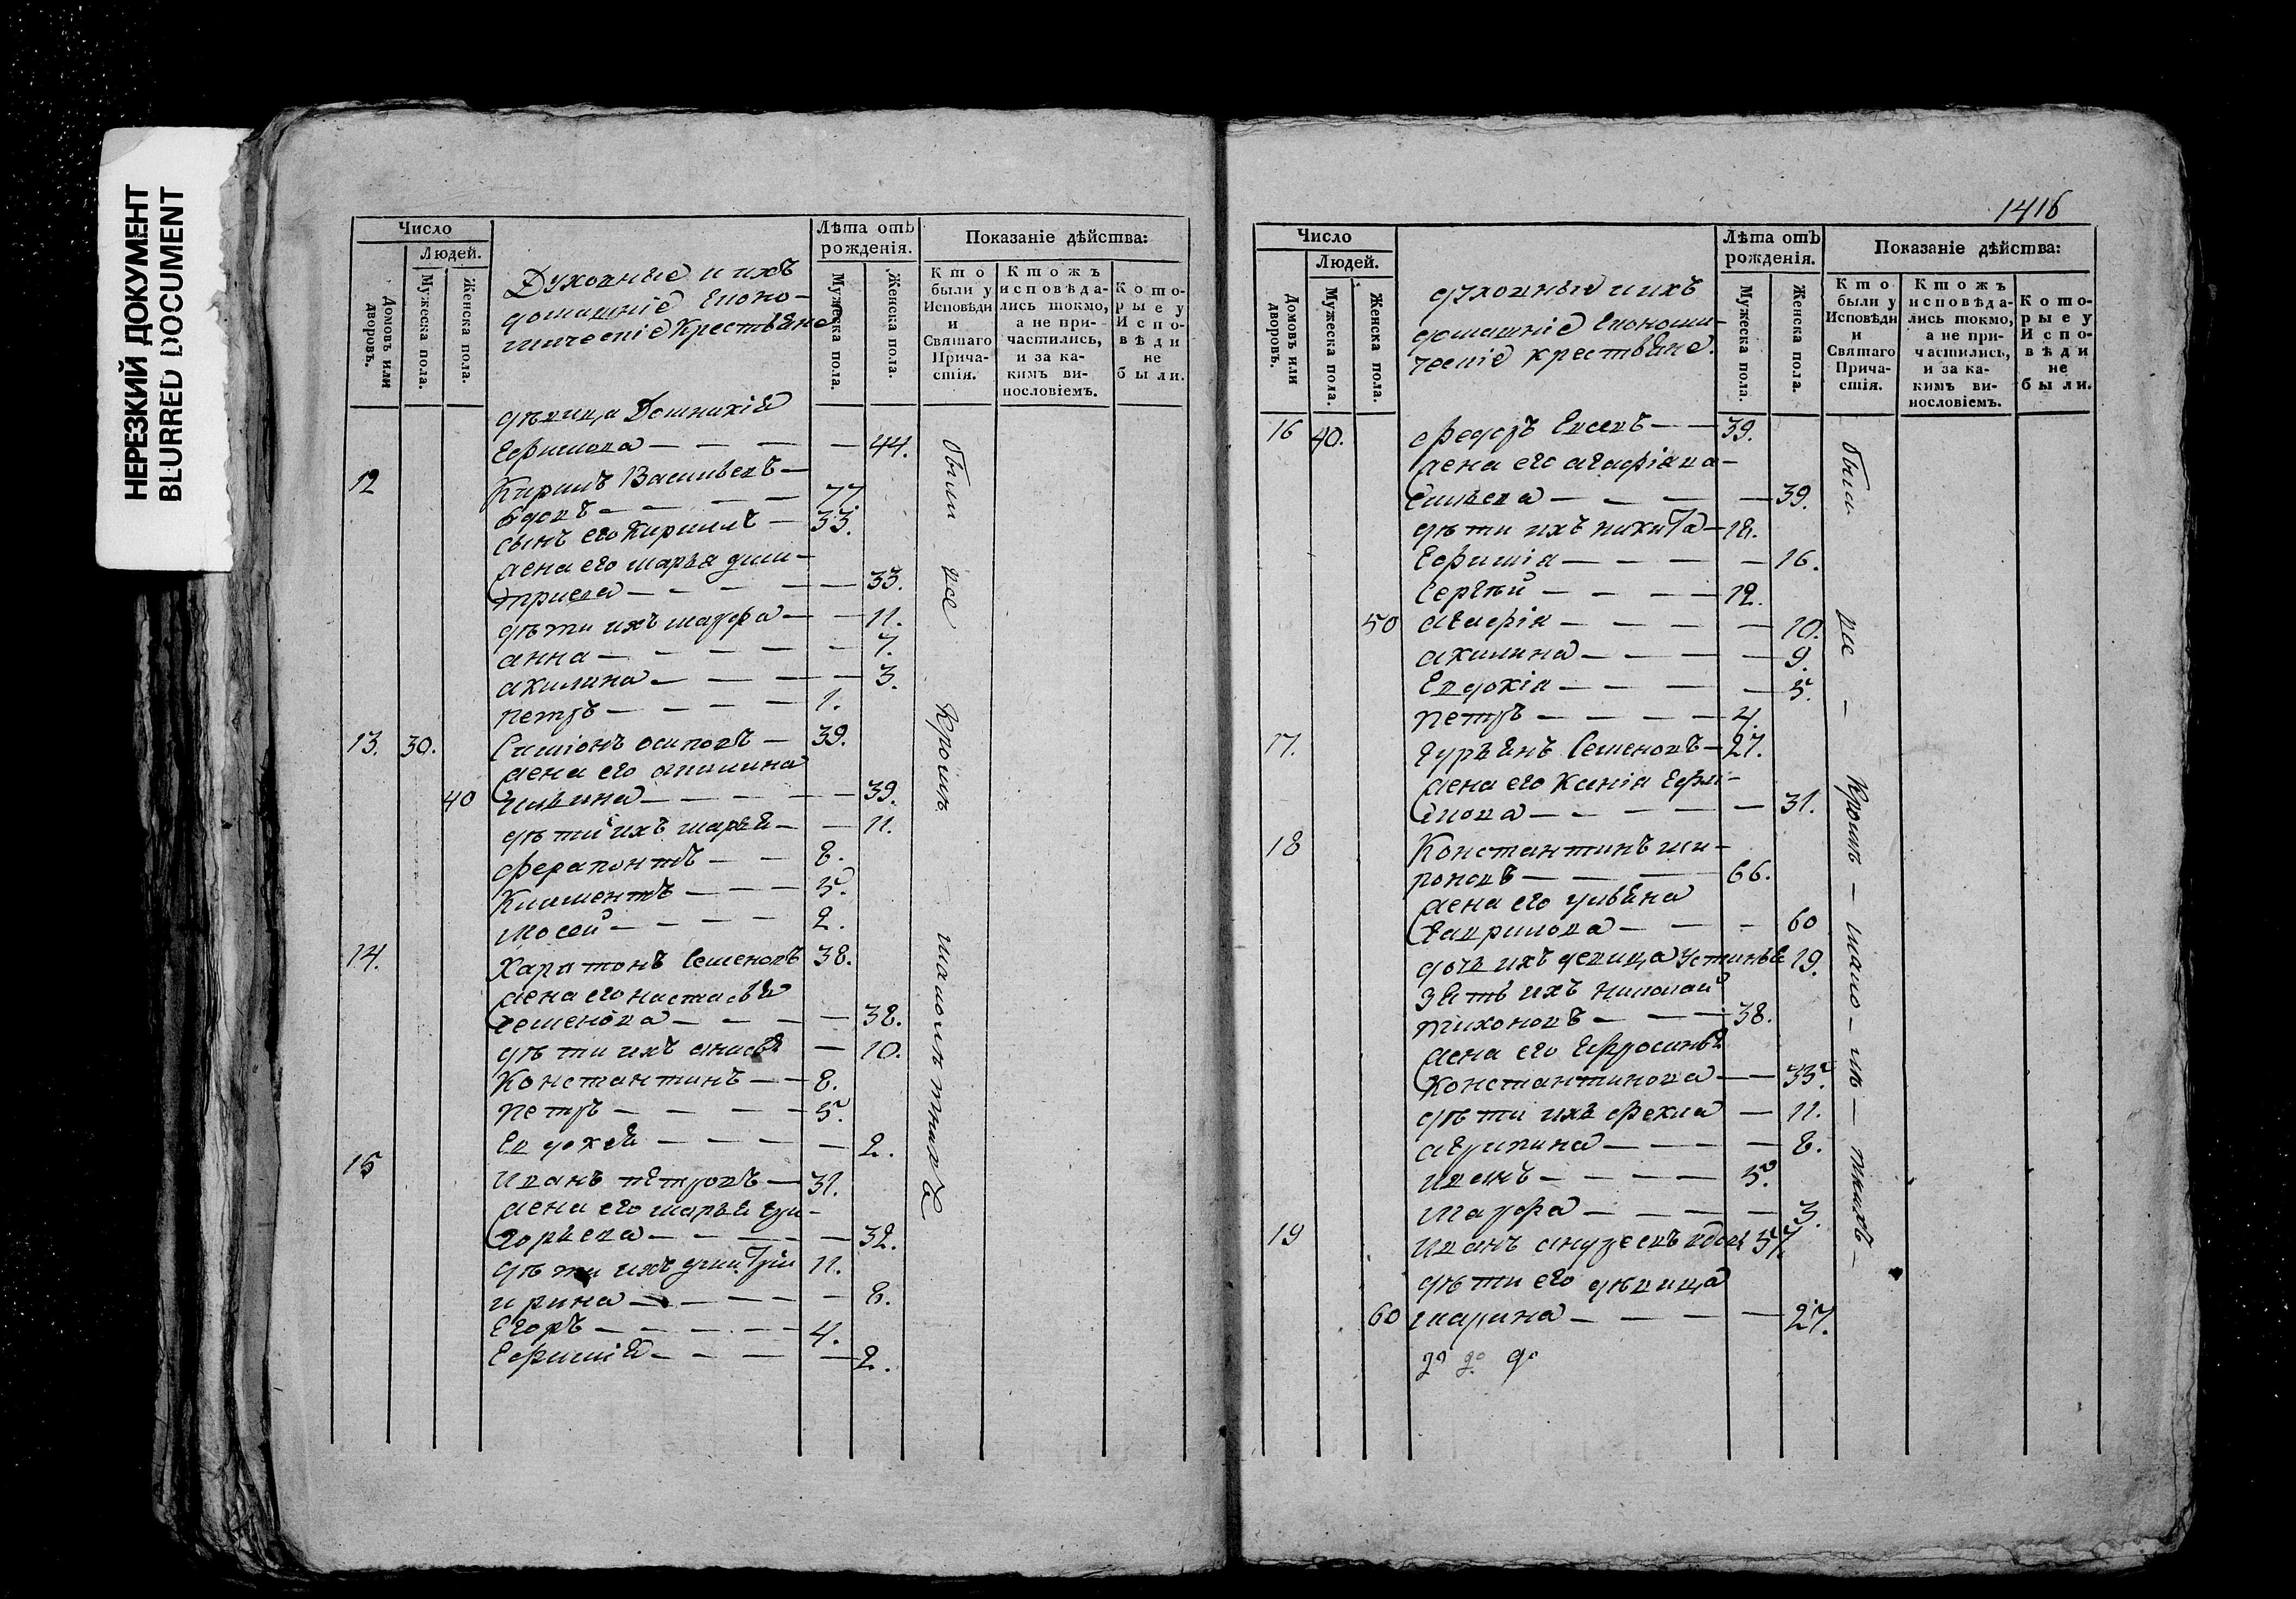 НЕРЕЗКИЙ ДОКУМЕНТ
BLURRED DOCUMENT
Число
Людей.
Домовъ или дворовъ.
Мужеска пола.
Женска пола.
Духовные и ихъ
домашніе Еконо-
мическіе Крестьяне
Лѣта отъ рожденія.
Мужеска пола.
Женска пола.
Показаніе дѣйства:
Кто были у Исповѣди и Святаго Прича-стія.
Ктожъ исповѣда-лись токмо, а не при-частились, и за ка-кимъ ви-нословіемъ.
Кото-рые у Испо-вѣди не были.
дѣвица Домникія
Ефимова — — — — 44.
12 Кирилъ Васильевъ —
вдовъ — — — 77
сынъ его Кирилъ — 33.
жена его марья дми-
триева — — — — 33.
дѣти ихъ марфа — — 11.
анна — — — — — 7.
акилина — — — — 3.
петръ — — — — 1.
13. 30. Симіонъ осиповъ — 39.
жена его акилина
40 — — — — 39.
дѣти ихъ марья — — 11.
ферапонтъ — — 8.
Климентъ — — — 5.
Мосей — — — — 2.
14. Харитонъ Семеновъ 38.
жена его настасья
Семенова — — — — 38.
дѣти ихъ анисья — 10.
Константинъ — — 8.
петръ — — — — 5.
Евдокея — — — — 2.
15 Иванъ петровъ — 31.
жена его марья гри-
горьева — — — — 32.
дѣти ихъ дмитрій 11.
ирина — — — — — 8.
Егоръ — — — — — 4.
Ефимия — — — — 2.
были все Кромѣ малолѣтныхъ
1416
Число
Людей.
Домовъ или дворовъ.
Мужеска пола.
Женска пола.
духовныи и ихъ
домашніе Економи-
ческіе крестьяне.
Лѣта отъ рожденія.
Мужеска пола.
Женска пола.
Показаніе дѣйства:
Кто были у Исповѣди и Святаго Прича-стія.
Ктожъ исповѣда-лись токмо, а не при-частились, и за ка-кимъ ви-нословіемъ.
Кото-рые у Испо-вѣди не были.
16 40. федоръ Евсевъ — — 39.
жена его агафія
— — — — 39.
дѣти ихъ никита — 18.
Ефимія — — — — 16.
Сергѣй — — — — 12.
50 агафія — — — — 10.
акилина — — — — 9.
Евдокія — — — — 5.
петръ — — — — 4.
17. гурьянъ Семеновъ — 27.
жена его Ксенія Ефи-
мова — — — — 31.
18 Константинъ ми-
роновъ — — — — 66.
жена его ульяна
гаврилова — — — 60
дочь ихъ девица устинья 19.
зять ихъ николай
тихоновъ — — — 38.
жена его Ефросинья
Константинова — — 35.
дѣти ихъ фекла — 11.
агрипина — — — — 8.
иванъ — — — — 5.
Марфа — — — — 3.
19 Иванъ андреевъ вдовъ 57.
дѣти его дѣвица
60 марина — — — — 27.
были все — Кромѣ — мало — лѣ — тныхъ —